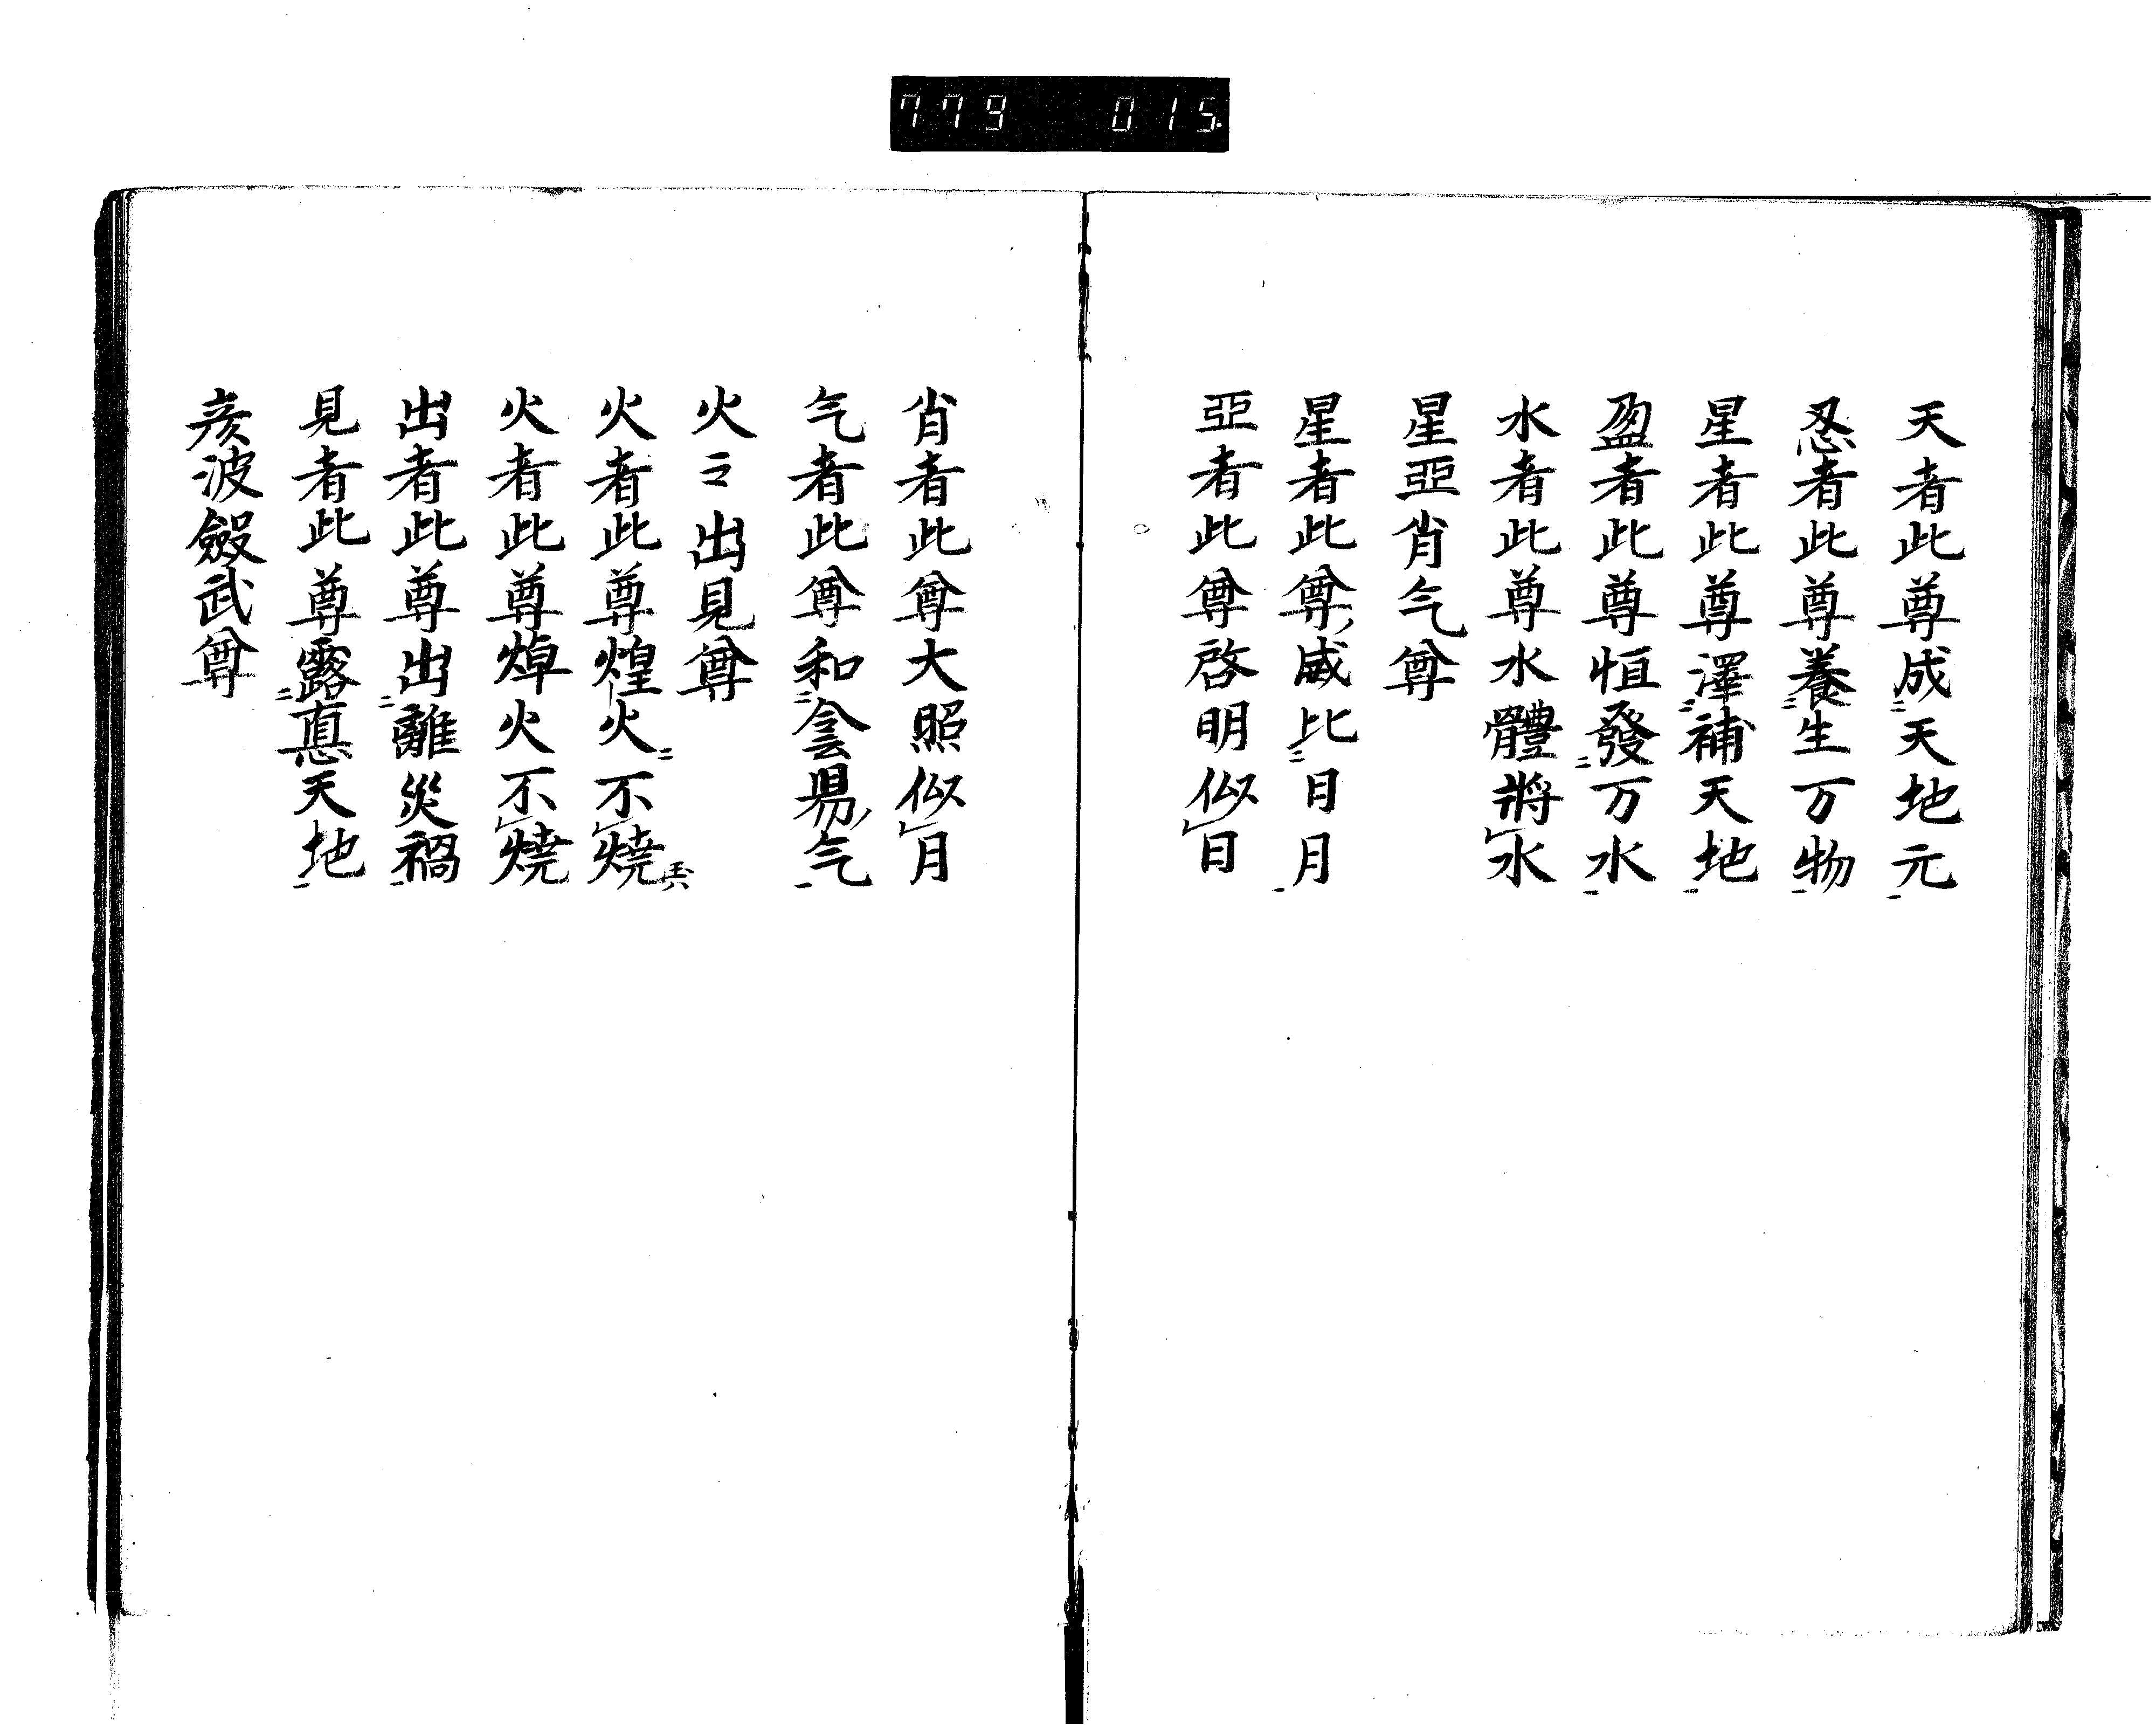 779 015
天者此尊成天地元
忍者此尊養生万物
星者此尊澤補天地
盈者此尊恒發万水
水者此尊水體將水
星亞肖气尊
星者此尊威比日月
亞者此尊啓明似日
肖者此尊大照似月
气者此尊和侌昜气
火〻出見尊
火者此尊煌火不燒
火者此尊焯火不燒
出者此尊出離災禍
見者此尊露悳天地
彦波瀲武尊